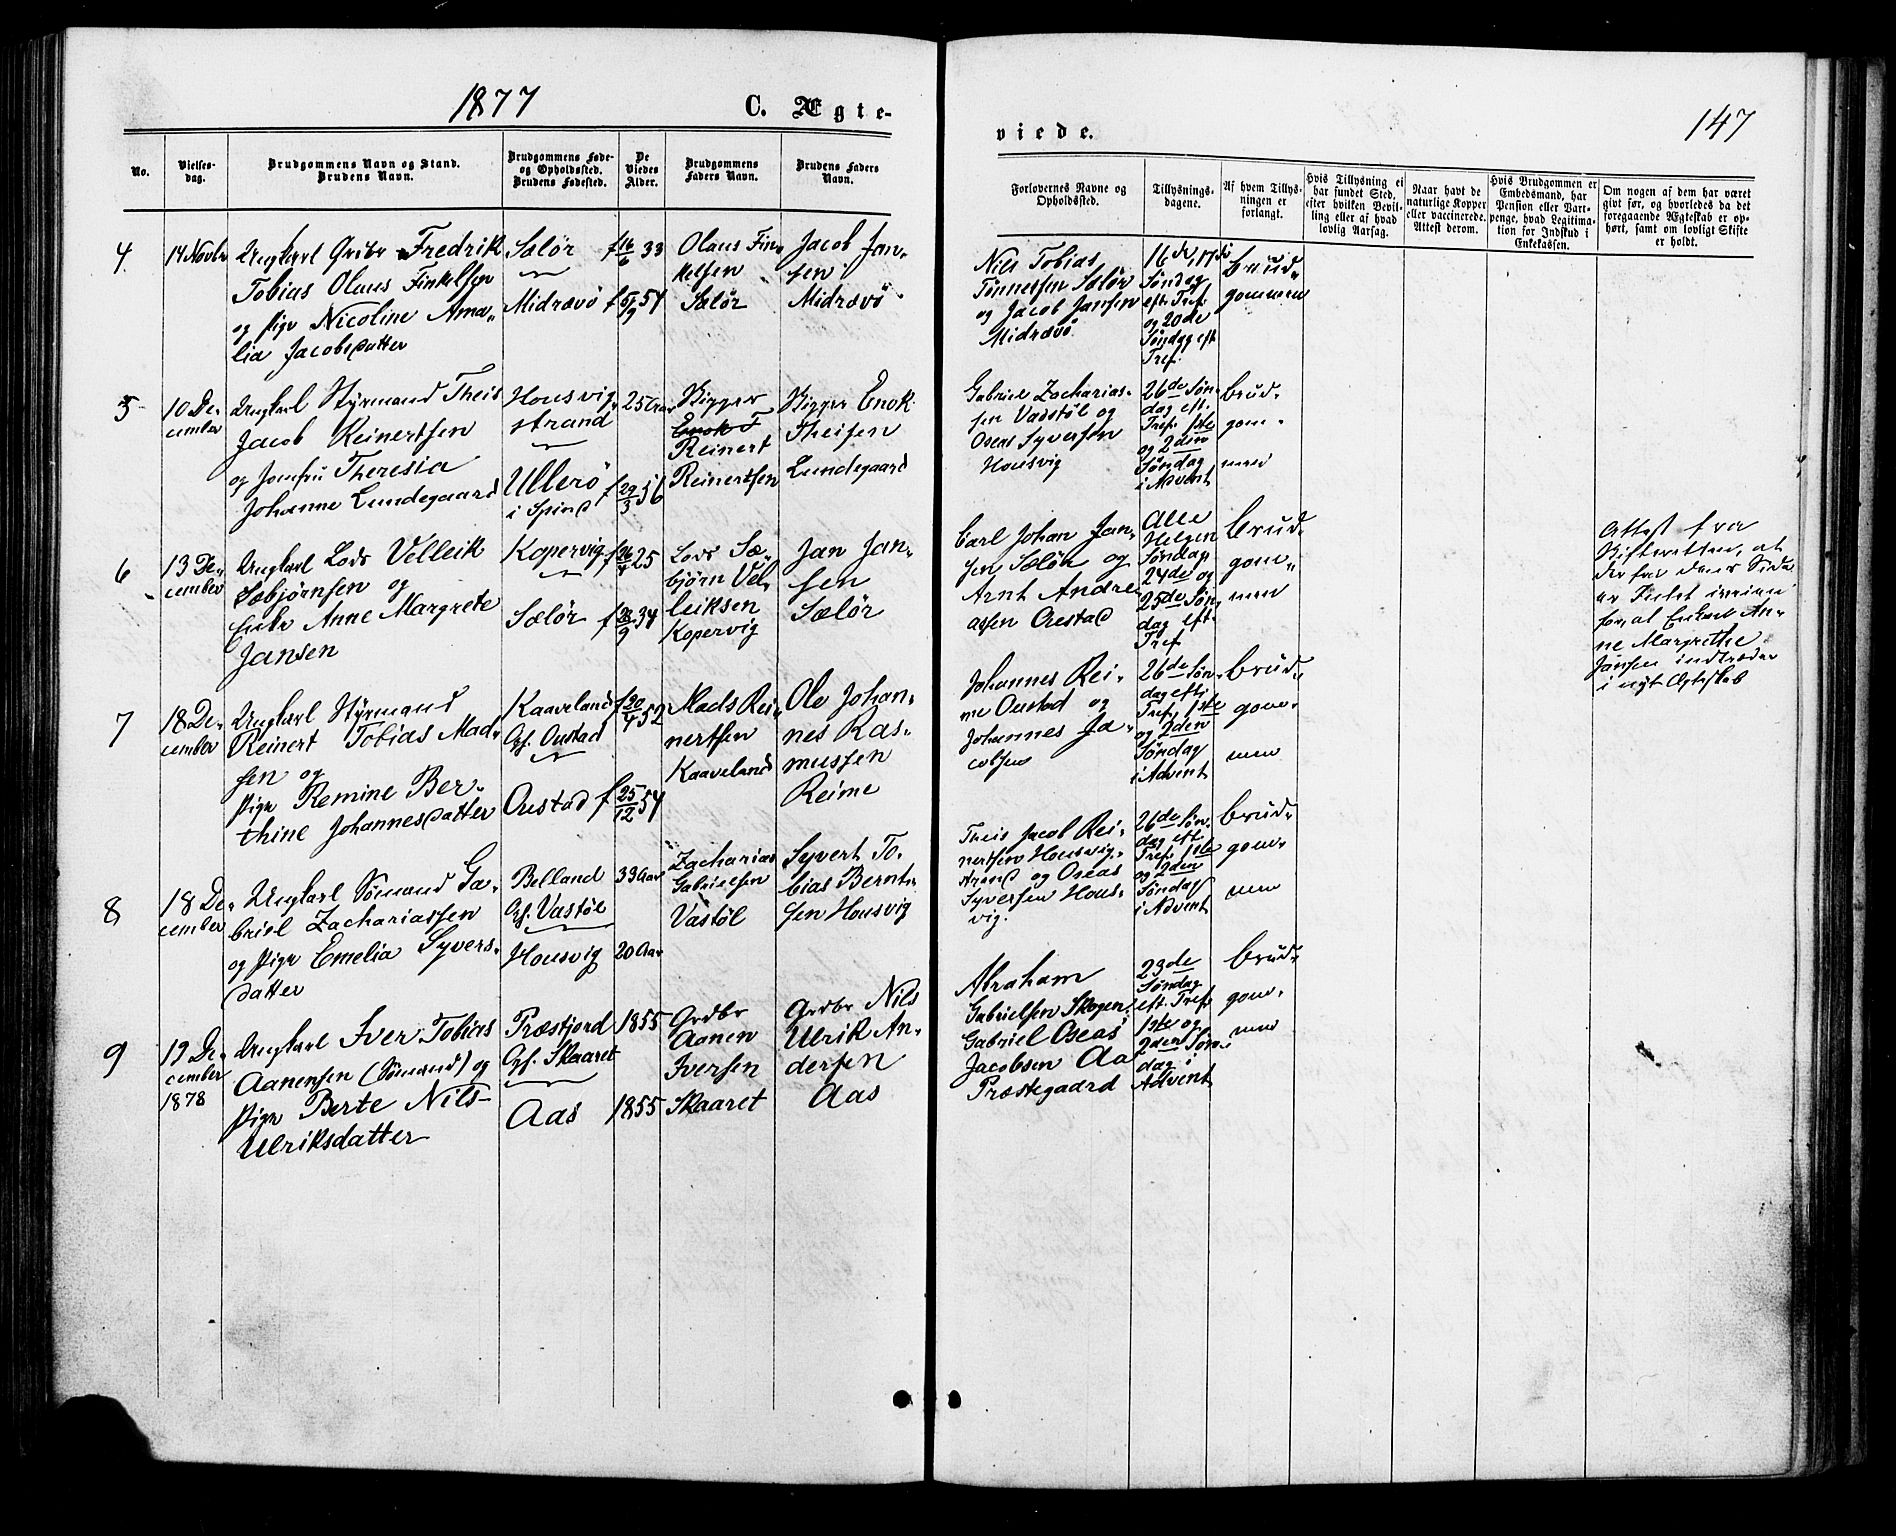 1877
C. Ægte-
viede.
147
No.
Vielses-
dag.
Brudgommens Navn og Stand.
Brudens Navn.
Brudgommens Føde-
og Opholdssted.
Brudens Fødested.
De
Viedes
Alder.
Brudgommens
Faders Navn.
Brudens Faders
Navn.
Forlovernes Navne og
Opholdssted.
Tillysnings-
dagene.
Af hvem Tillys-
ningen er
forlangt.
Hvis Tillysning ei
har fundet Sted,
efter hvilken Bevil-
ling eller af hvad
lovlig Aarsag.
Naar havt de
naturlige Kopper
eller vaccinerede.
Attest derom.
Hvis Brudgommen er
Embedsmand, har
Pension eller Vart-
penge, hvad Legitima-
tion for Indskud i
Enkekassen.
Om nogen af dem har været
givt før, og hvorledes da det
foregaaende Ægteskab er op-
hørt, samt om lovligt Skifte
er holdt.
4
14 Novbr
Ungkarl Grdbr Fredrik
Tobias Olaus Finkelsen
og Pige Nicoline Ama-
lia Jacobsdatter
Sælør
Midrævø
f 16/6 33
f 5/9 54
Olaus Fin-
kelsen
Sælør
Jacob Jan-
sen
Midrævø
Nils Tobias
Tønnessen Sælør
og Jacob Jansen
Midrævø
16de, 17de
Søndag
eft. Tref.
og 20de
Søndag eft
Tref.
brud-
gommen
5
10 De-
cember
Ungkarl Styrmand Theis
Jacob Reinertsen
og Jomfru Theresia
Johanne Lundegaard
Housvig-
strand
Ullerø
i Spind
25 Aar
f 29/3 56
Bygger
Enok T
Reinert
Reinertsen
Bygger Enok
Theisen
Lundegaard
Gabriel Zacharias-
sen Vadstøl og
Oseas Syversen
Housvig
26de Søn-
dag eft.
Tref. 1ste
og 2den
Søndag
i Advent
brud-
gom-
men
6
13 De-
cember
Ungkarl Lods Velleik
Sæbjørnsen og
Enke Anne Margrete
Jansen
Kopervig
Sælør
f 26/4 25
f 22/9 34
Lods Sæ-
bjørn Vel-
leiksen
Kopervig
Jan Jan-
sen
Sælør
Carl Johan Jan-
sen Sælør og
Arnt Andre-
assen Ouestad
Alle
Helgen
Søndag
24de og
25de Søn-
dag eft.
Tref
brud-
gom-
men
Attest fra
Skifteretten, at
der fra dens Side
er Intet iveien
for, at Enken An-
ne Margrethe
Jansen indtræder
i nyt Ægteskab
7
18 De-
cember
Ungkarl Styrmand
Reinert Tobias Mad-
sen og
Pige Remine Ber-
thine Johannesdatter
Kaaveland
Gf. Oustad
Oustad
f 20/4 52
f 25/12 54
Mads Rei-
nertsen
Kaaveland
Ole Johan-
nes Ras-
mussen
Reime
Johannes Rei-
me Oustad og
Johannes Ja-
cobsen
26de Søn-
dag eft.
Tref., 1ste
og 2den
Søndag
i Advent
brud-
gom-
men
8
18 De-
cember
Ungkarl Sømand Ga-
briel Zachariassen
og Pige Emelia Syvers-
datter
Belland
Gf. Vastøl
Housvig
33 Aar
20 Aar
Zacharias
Gabrielsen
Vastøl
Syvert To-
bias Bernt-
sen Housvig
Theis Jacob Rei-
nertsen Housvig-
strand og Oseas
Syversen Hous-
vig.
26de Søn-
dag eft
Tref. 1ste
og 2den
Søndag
i Advent
brud-
gom-
men
9
19 De-
cember
1878
Ungkarl Iver Tobias
Aanensen (Sømand) og
Pige Berte Nils-
Ulriksdatter
Præstjord
Gf. Skaaret
Aas
1855
1855
Grdbr
Aanen
Iversen
Skaaret
Grdbr Nils
Ulrik An-
dersen
Aas
Abraham
Gabrielsen Skogen
Gabriel Oseas
Jacobsen Aa
Præstegaard
23de
Søndag
eft. Tref.
1ste og
2den Søn-
dag i
Advent
brud-
gom-
men